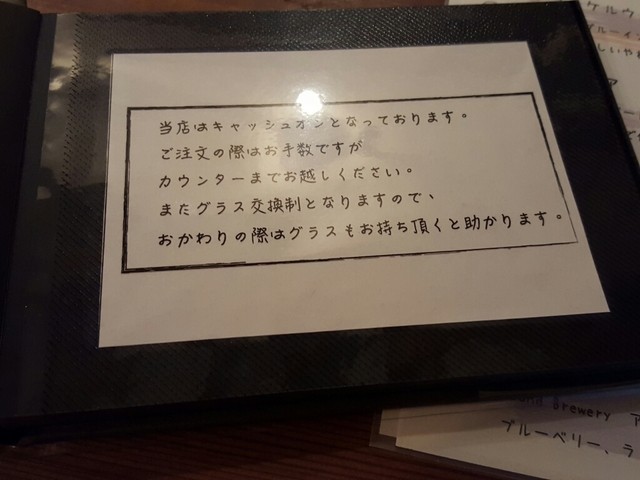 当店はキャッシュオンとなっております。
ご注文の際はお手数ですが
カウンターまでお越しください。
またグラス交換制となりますので、
おかわりの際はグラスもお持ち頂くと助かります。
ケルウ
ブルーイン
しいやわ
ア
Brewery ア
ブルーベリー、ラ